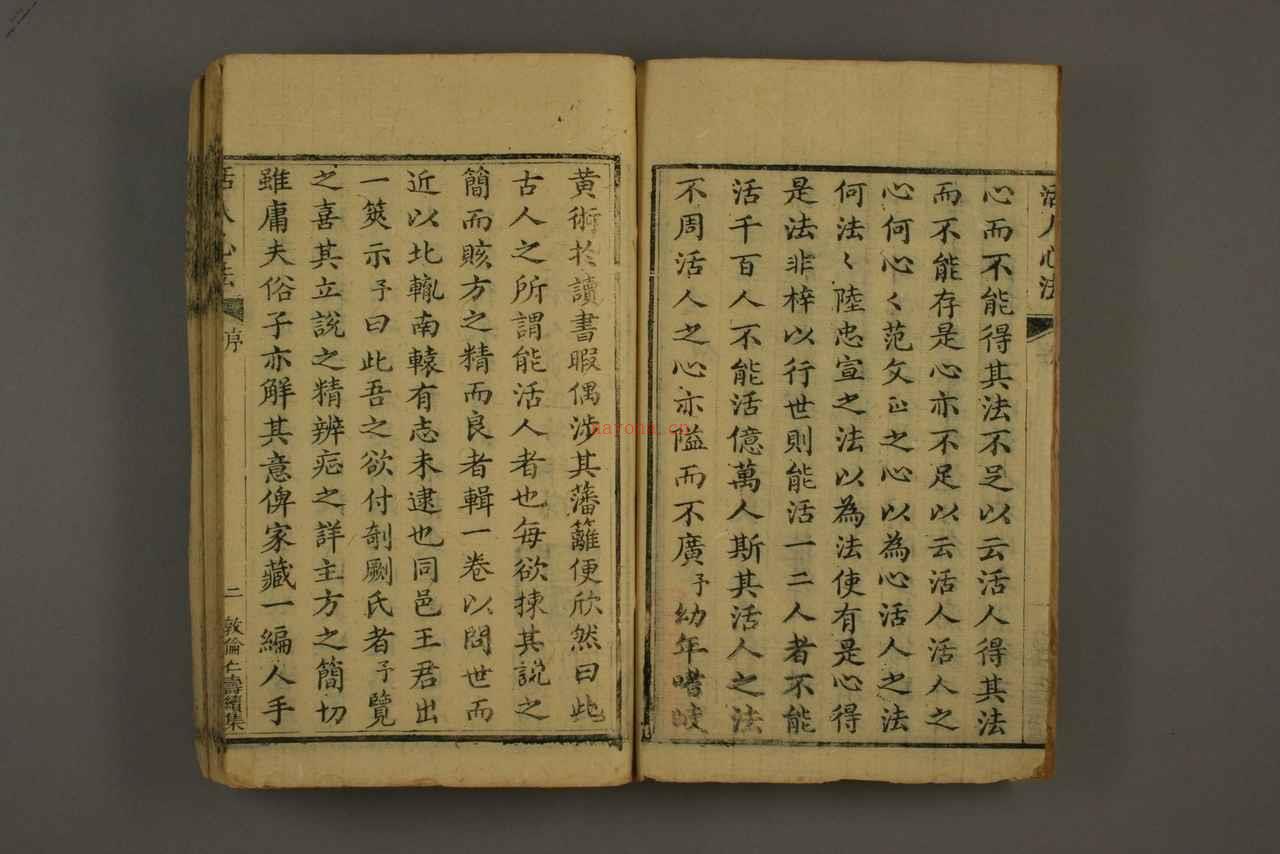 活人心法
心而不能得其法不足以云活人得其法
而不能存是心亦不足以云活人活人之
心何心〻范文正之心以為心活人之法
何法〻陸忠宣之法以為法使有是心得
是法非梓以行世則能活一二人者不能
活千百人不能活億萬人斯其活人之法
不周活人之心亦隘而不廣予幼年嗜岐
黄術於讀書暇偶涉其藩籬便欣然曰此
古人之所謂能活人者也每欲揀其說之
簡而賅方之精而良者輯一卷以問世而
近以北轍南轅有志未逮也同邑王君出
一筴示予曰此吾之欲付剞劂氏者予覽
之喜其立說之精辨症之詳主方之簡切
雖庸夫俗子亦解其意俾家藏一編人手
活人心法 序 二 敦倫仁壽續集
nayona.cn